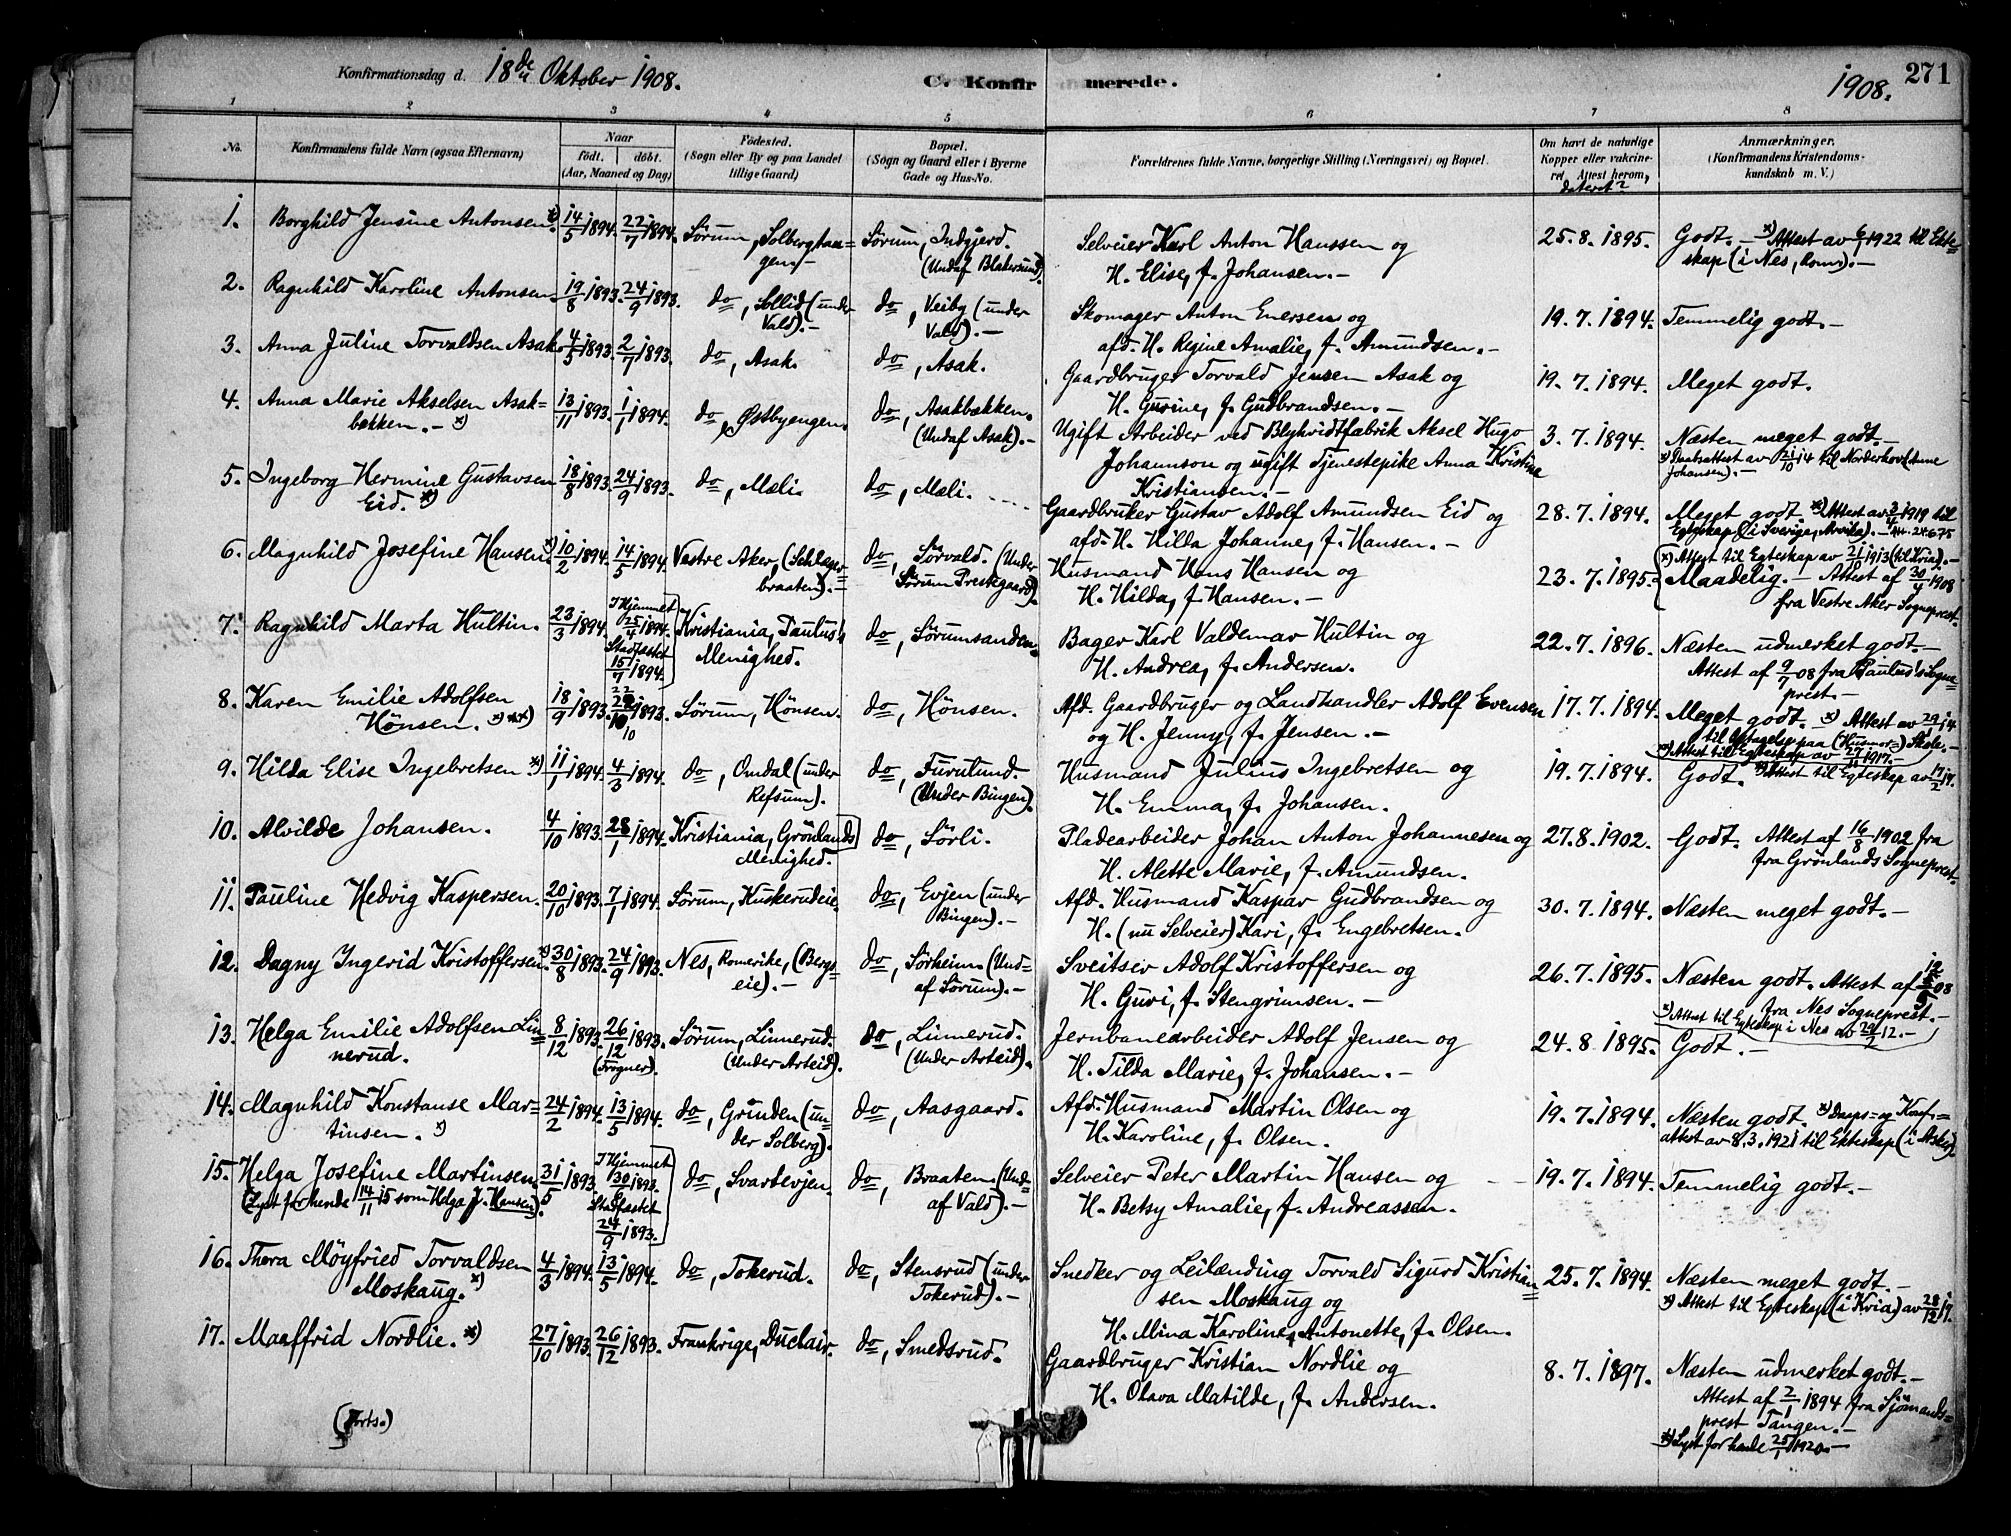 Konfirmationsdag d. 18de Oktober 1908.
C. Konfirmerede.
1908.
271
1 2 3 4 5 6 7 8
No.
Konfirmandens fulde Navn (ogsaa Efternavn)
Naar
født. døbt.
(Aar, Maaned og Dag)
Fødested.
(Sogn eller By og paa Landet
tillige Gaard)
Bopæl.
(Sogn og Gaard eller i Byerne
Gade og Hus-No.
Forældrenes fulde Navne, borgerlige Stilling (Næringsvei) og Bopæl.
Om havt de naturlige
Kopper eller vakcine-
ret. Attest herom,
dateret?
Anmærkninger.
(Konfirmandens Kristendoms-
kundskab m. V.)
1. Borghild Jensine Antonsen. x) 14/5 1894. 22/7 1894. Sørum, Solberghau= Sørum, Indgjerd. Selveier Karl Anton Hanssen og 25.8.1895. Godt. - x) Attest av 6/1 1922 til Ekte=
gen.- (Undaf Blakersund). H. Elise, f. Johansen.- skap (i Nes, Rom.).-
2. Ragnhild Karoline Antonsen. 19/8 1893. 24/9 1893. do, Sollid (under do, Veiby (under Skomager Anton Enersen og 19.7.1894. Temmelig godt.-
Vald).- Vald).- afd. H. Regine Amalie, f. Amundsen.-
3. Anna Juline Torvaldsen Asak. 4/5 1893. 2/7 1893. do, Asak. do, Asak. Gaardbruger Torvald Jensen Asak og 19.7.1894. Meget godt.
H. Gurine, f. Gudbrandsen.-
4. Anna Marie Akselsen Asak= 13/11 1893. 1/1 1894. do, Østbyengen. do, Asakbækken. Ugift Arbeider ved Blyhvidtfabrik Aksel Hugo 3.7.1894. Næsten meget godt.-
bækken.- x) (Undaf Asak).- Johannson og ugift Tjenestepike Anna Kristine x) Daabsattest av 21/10 14 til Norderhov (Anne
Kristiansen.- Johansen).-
5. Ingeborg Hermine Gustavsen 18/8 1893. 24/9 1893. do, Mæli. do, Mæli. Gaardbruker Gustav Adolf Amundsen Eid og 28.7.1894. Meget godt. x) Attest av 3/4 1919 til
Eid. x) afd. H. Hilda Johanne, f. Hansen.- Egteskap (i Sverige, Arvika).-
6. Magnhild Josefine Hansen. x) 10/2 1894. 14/5 1894. Vestre Aker, (Schlager= do, Sørvald. (Under Husmand Hans Hansen og 23.7.1895. x) Attest til Egteskap av 21/10 1913 (til Kria).-
braaten).- Sørum Prestegaard). H. Hilda, f. Hansen.- Maadelig.- Attest af 30/4 1908
fra Vestre Aker Sogneprest.
7. Ragnhild Marta Hultin. 23/3 1894. I Hjemmet 25/4 1894. Stadfæstet 15/7 1894. Kristiania, Paulus's do, Sørumsanden. Bager Karl Valdemar Hultin og 22.7.1896. Næsten udmerket godt.-
Menighed. H. Andrea, f. Andersen. Attest af 9/7 08 fra Paulus's Sogne=
prest.-
8. Karen Emilie Adolfsen 18/9 1893. 22/10 1893. Sørum, Hönsen. do, Hönsen. Afd. Gaardbruger og Landhandler Adolf Evensen 17.7.1894. Meget godt.- x) Attest av 29/1 14
Hönsen. x) xx) og H. Jenny, f. Jensen.- til Optagelse paa (Husmor=) Skole.-
xx) Attest til Egteskap av 27/11 1917.-
9. Hilda Elise Ingebretsen x) 11/1 1894. 4/3 1894. do, Omdal (under do, Furulund. Husmand Julius Ingebretsen og 19.7.1894. Godt. x) Attest til Egteskap av 17/2 17.
Refsum). (Under Bingen). H. Emma, f. Johansen.
10. Alvilde Johansen. 4/10 1893. 28/1 1894. Kristiania, Grönlands do, Sörli. Pladearbeider Johan Anton Johannesen og 27.8.1902. Godt. Attest af 16/8 1902 fra
Menighed. H. Alette Marie, f. Amundsen. fra Grønlands Sogneprest.
11. Pauline Hedvig Kaspersen. 20/10 1893. 7/1 1894. Sørum, Kuskerudeie. do, Evjen (under Afd. Husmand Kaspar Gudbrandsen og 30.7.1894. Næsten meget godt.-
Bingen).- H. (nu Selveier) Kari, f. Engebretsen.
12. Dagny Ingerid Kristoffersen. x) 30/8 1893. 24/9 1893. Nes, Romerike, (Bergs= do, Sörheim (Und= Sveitser Adolf Kristoffersen og 26.7.1895. Næsten godt. Attest af 12/9 08
eie).- af Sørum).- H. Guri, f. Stengrimsen.- fra Nes Sogneprest.-
x) Attest til Egteskap i Nes av 29/2 12.-
13. Helga Emilie Adolfsen Lin= 8/12 1893. 26/12 1893. Sørum, Linnerud. do, Linnerud. Jernbanearbeider Adolf Jensen og 24.8.1895. Godt.-
nerud. (Frogner). (Under Arteid). (Under Arteid). H. Tilda Marie, f. Johansen.-
14. Magnhild Konstanse Mar= 24/2 1894. 13/5 1894. do, Grinden (un= do, Aasgaard. Afd. Husmand Martin Olsen og 19.7.1894. Næsten godt. x) Daaps= og Konf.=
tinsen. x) der Solberg). H. Karoline, f. Olsen. attest av 8.3.1921 til Ekteskap (i Asker).
15. Helga Josefine Martinsen. 31/5 1893. I Hjemmet 1893. Stadfæstet 24/9 1893. do, Svartevjen. do, Braaten (Und= Selveier Peter Martin Hansen og 19.7.1894. Temmelig godt.-
(Lyst for hende 14/11 15 som Helga J. Hansen). af Vald).- H. Betsy Amalie, f. Andreassen.
16. Thora Möyfried Torvaldsen 4/3 1894. 13/5 1894. do, Tokerud. do, Stensrud (under Snedker og Leilænding Torvald Sigurd Kristian= 25.7.1894. Næsten meget godt.-
Moskaug. x) Tokerud).- sen Moskaug og x) Attest til Egteskap (i Kria) av 28/12 17.
H. Mina Karoline Antonette, f. Olsen.
17. Maaffrid Nordlie. x) 27/10 1893. 26/12 1893. Frankrige, Duclair. do, Smedsrud. Gaardbruger Kristian Nordlie og 8.7.1897. Næsten udmerket godt.-
H. Olava Matilde, f. Andersen. Attest af 2/1 1894 fra Sjømands=
prest Tangen.-
x) Lyst for hende 25/1 1920.-
(Forts.)